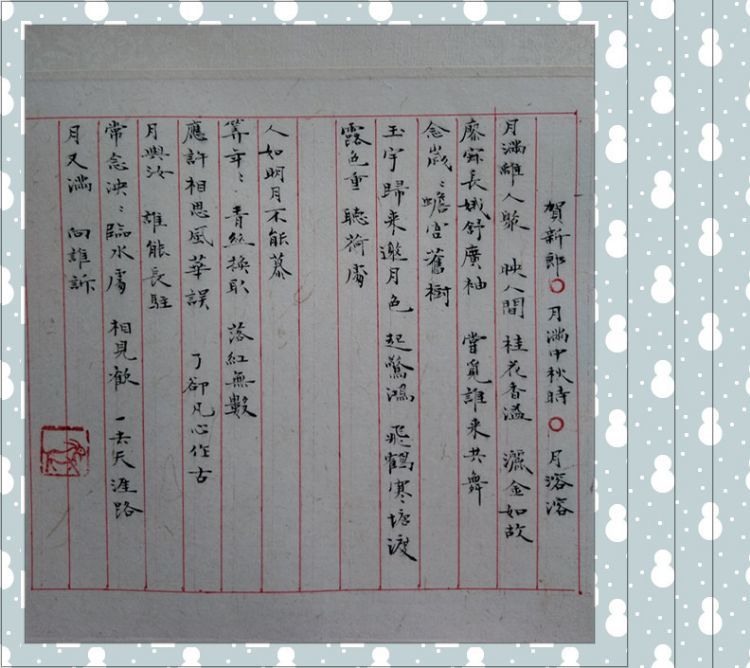 賀新郎○月滿中秋時○月溶溶
月滿離人聚 映人間 桂花香溢 灑金如故
廖寂長娥舒廣袖 嘗覓誰来共舞
念嵗〻蟾宫舊樹
玉宇歸来邀月色 起驚鴻 飛鶴寒塘渡
露色重 聽荷處
人如明月不能慕
算年〻 青絲换取 落紅無數
應許相思風華誤 了卻凡心作古
月與汝 誰能長駐
常念泱〻臨水處 相見歡 一去天涯路
月又滿 向誰訴